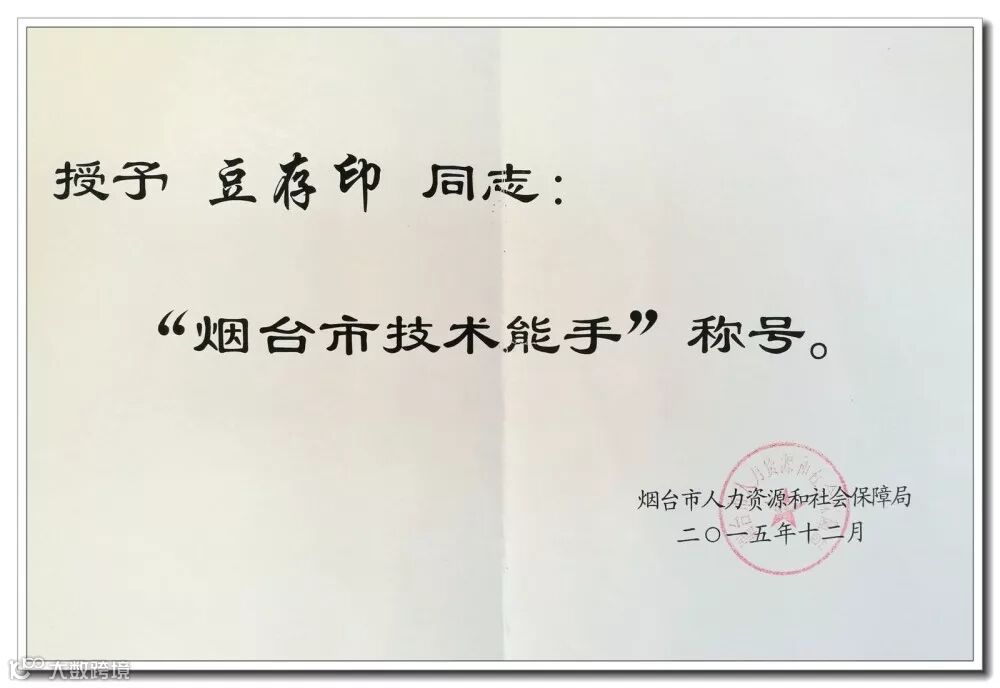 授予 豆存印 同志：
“烟台市技术能手”称号。
烟台市人力资源和社会保障局
二〇一五年十二月
大数跨境